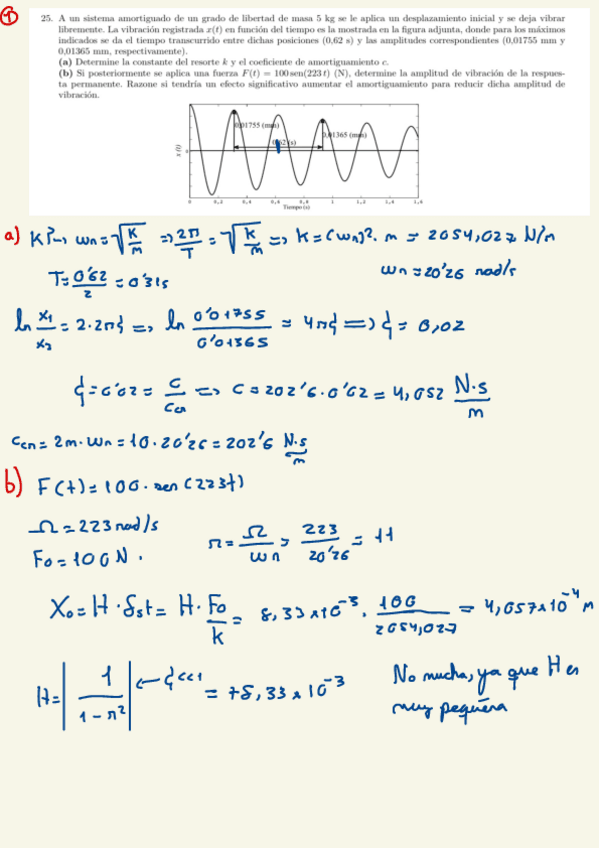 1
25. A un sistema amortiguado de un grado de libertad de masa 5 kg se le aplica un desplazamiento inicial y se deja vibrar
libremente. La vibración registrada x(t) en función del tiempo es la mostrada en la figura adjunta, donde para los máximos
indicados se da el tiempo transcurrido entre dichas posiciones (0,62 s) y las amplitudes correspondientes (0,01755 mm y
0,01365 mm, respectivamente).
(a) Determine la constante del resorte k y el coeficiente de amortiguamiento c.
(b) Si posteriormente se aplica una fuerza F(t) = 100 sen(223 t) (N), determine la amplitud de vibración de la respues-
ta permanente. Razone si tendría un efecto significativo aumentar el amortiguamiento para reducir dicha amplitud de
vibración.
0,01755 (mm)
0,01365 (mm)
0,62 (s)
x(t)
0 0,2 0,4 0,6 0,8 1 1,2 1,4 1,6
Tiempo (s)
a) K? → ωn = √(K/m) => 2π/T = √(K/m) => K = (ωn)². m = 2054,027 N/m
T = 0'62/2 = 0'31s
ωn = 20'26 rad/s
ln x1/x2 = 2·2πξ => ln 0'01755/0'01365 = 4πξ => ξ = 0,02
ξ = 0'02 = c/ccr => c = 202'6·0'02 = 4,052 N·s/m
ccr = 2m·ωn = 10·20'26 = 202'6 N·s/m
b) F(t) = 100·sen(223t)
Ω = 223 rad/s
F0 = 100 N.
r = Ω/ωn = 223/20'26 = 11
X0 = H·δst = H·F0/k = 8,33x10⁻³ · 100/2054,027 = 4,057x10⁻⁴ m
H = |1/(1-r²)| ← ξ<<1 = +8,33x10⁻³
No mucha, ya que H es
muy pequeña